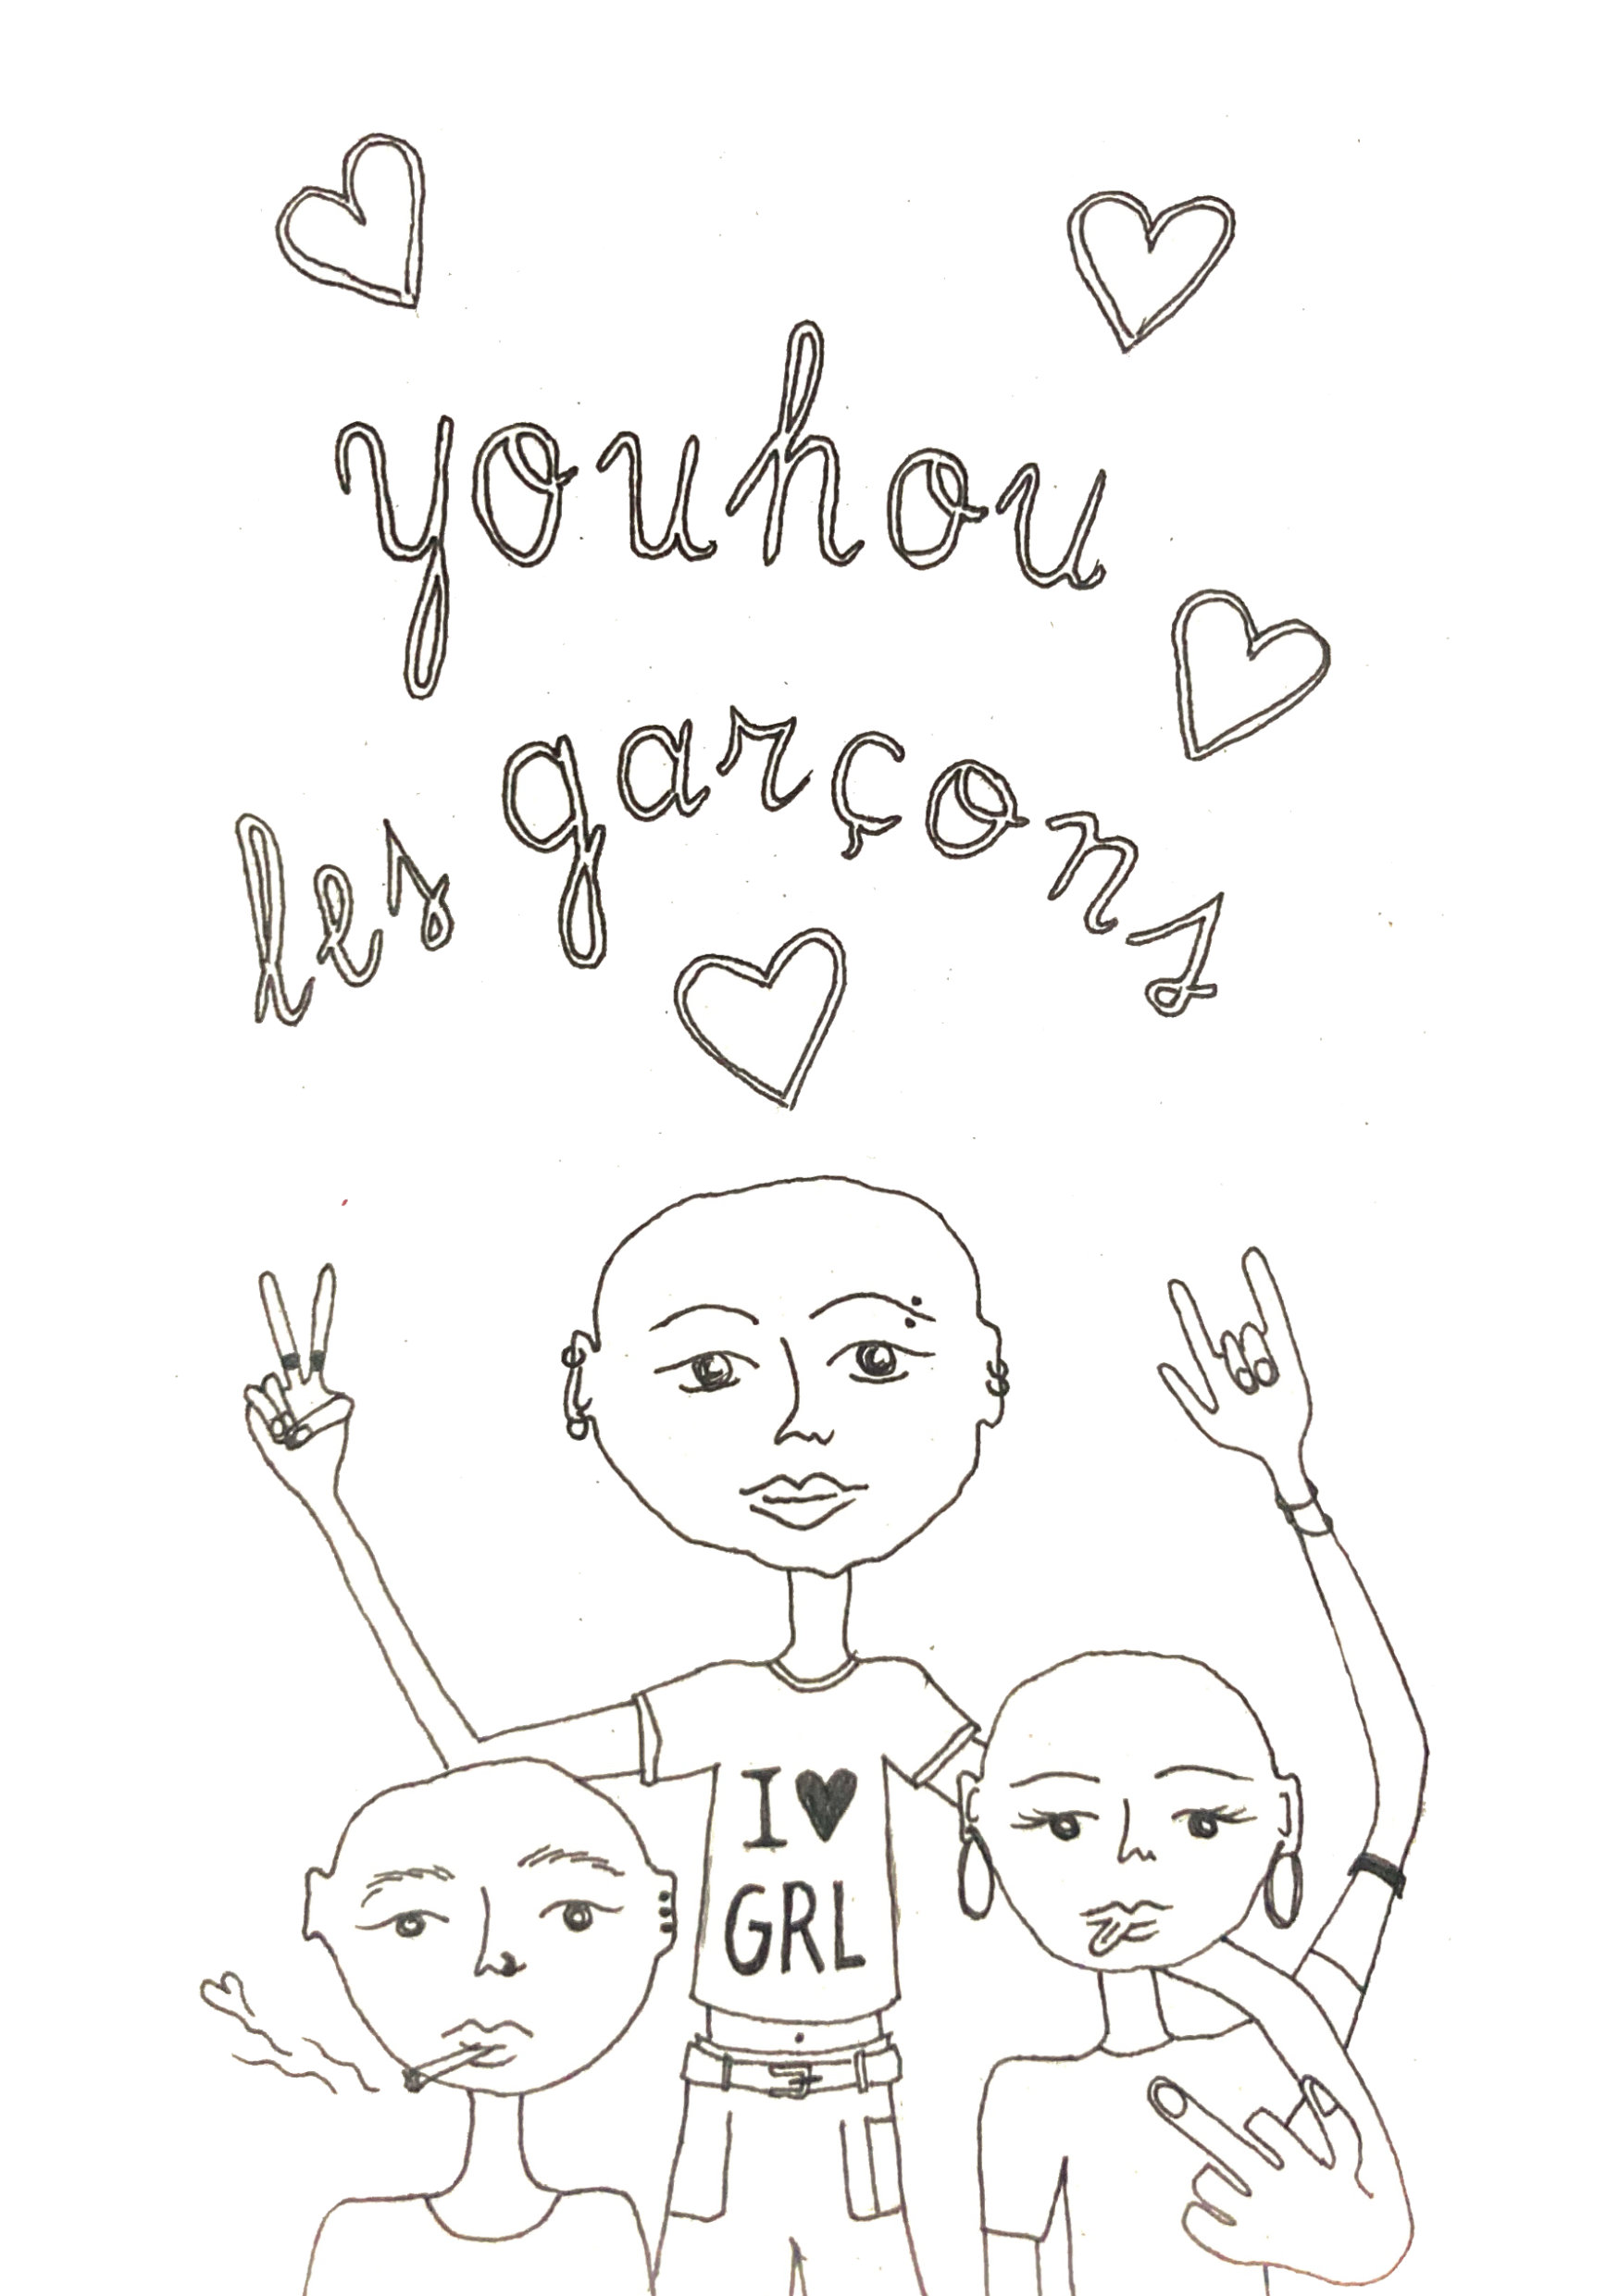 youhou
les garçons
I ♥
GRL